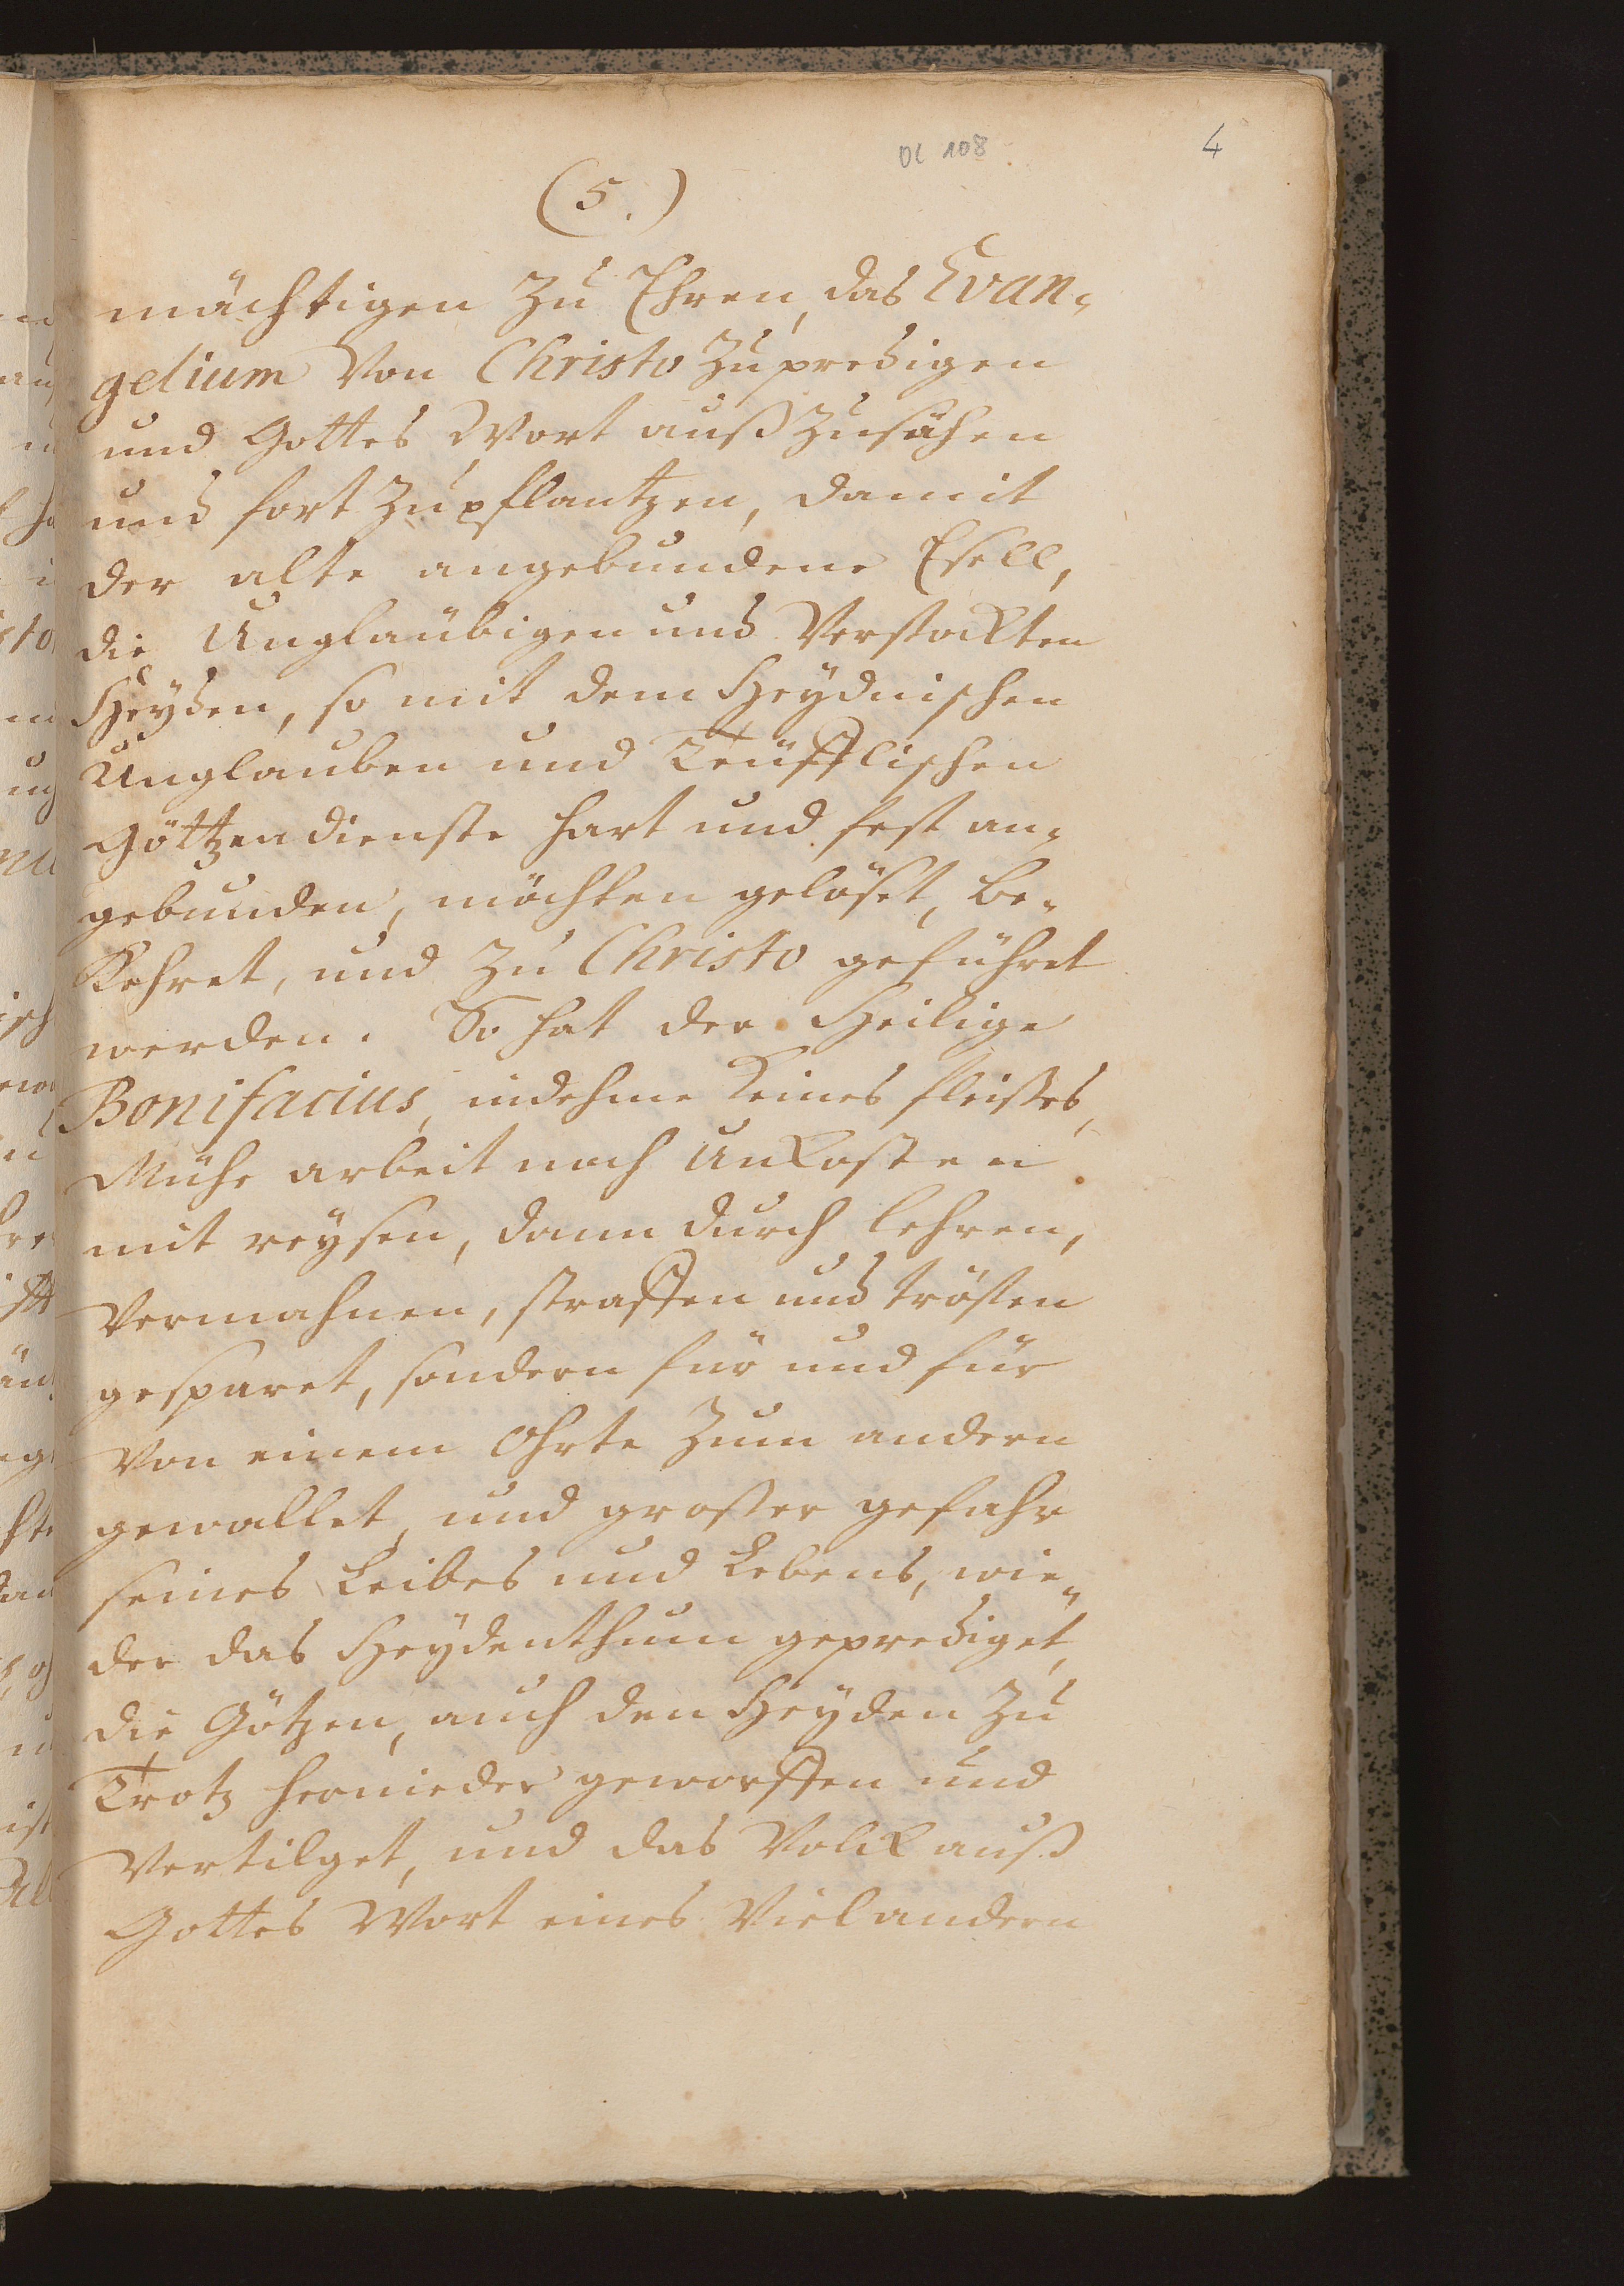 OC 108
4
(5.)
mächtigen zu Ehren, das Evan-
gelium Von Christo zu predigen
und Gottes Wort auß zusähen
und fort zu pflantzen, damit
der alte angebundene Esell,
die Unglaübigen und Verstokten
Heyden, so mit dem Heydnischen
Unglauben und Teüfflischen
Göttzendienste hart und fest an-
gebunden, möchten gelöset, be-
kehret, und zu Christo geführet
werden. So hat der Heilige
Bonifacius, indehme keines fleißes,
Mühe arbeit noch Unkosten
mit reysen, dann durch lehren,
Vermahnen, straffen und trösten
gesparet, sondern für und für
Von einem Ohrte zum andern
gewallet, und großer gefahr
seines Leibes und Lebens, wie-
der das Heydenthum geprediget,
die Götzen, auch den Heyden zu
Trotz hernieder geworffen und
Vertilget, und das Volck auß
Gottes Wort eines Viel andern